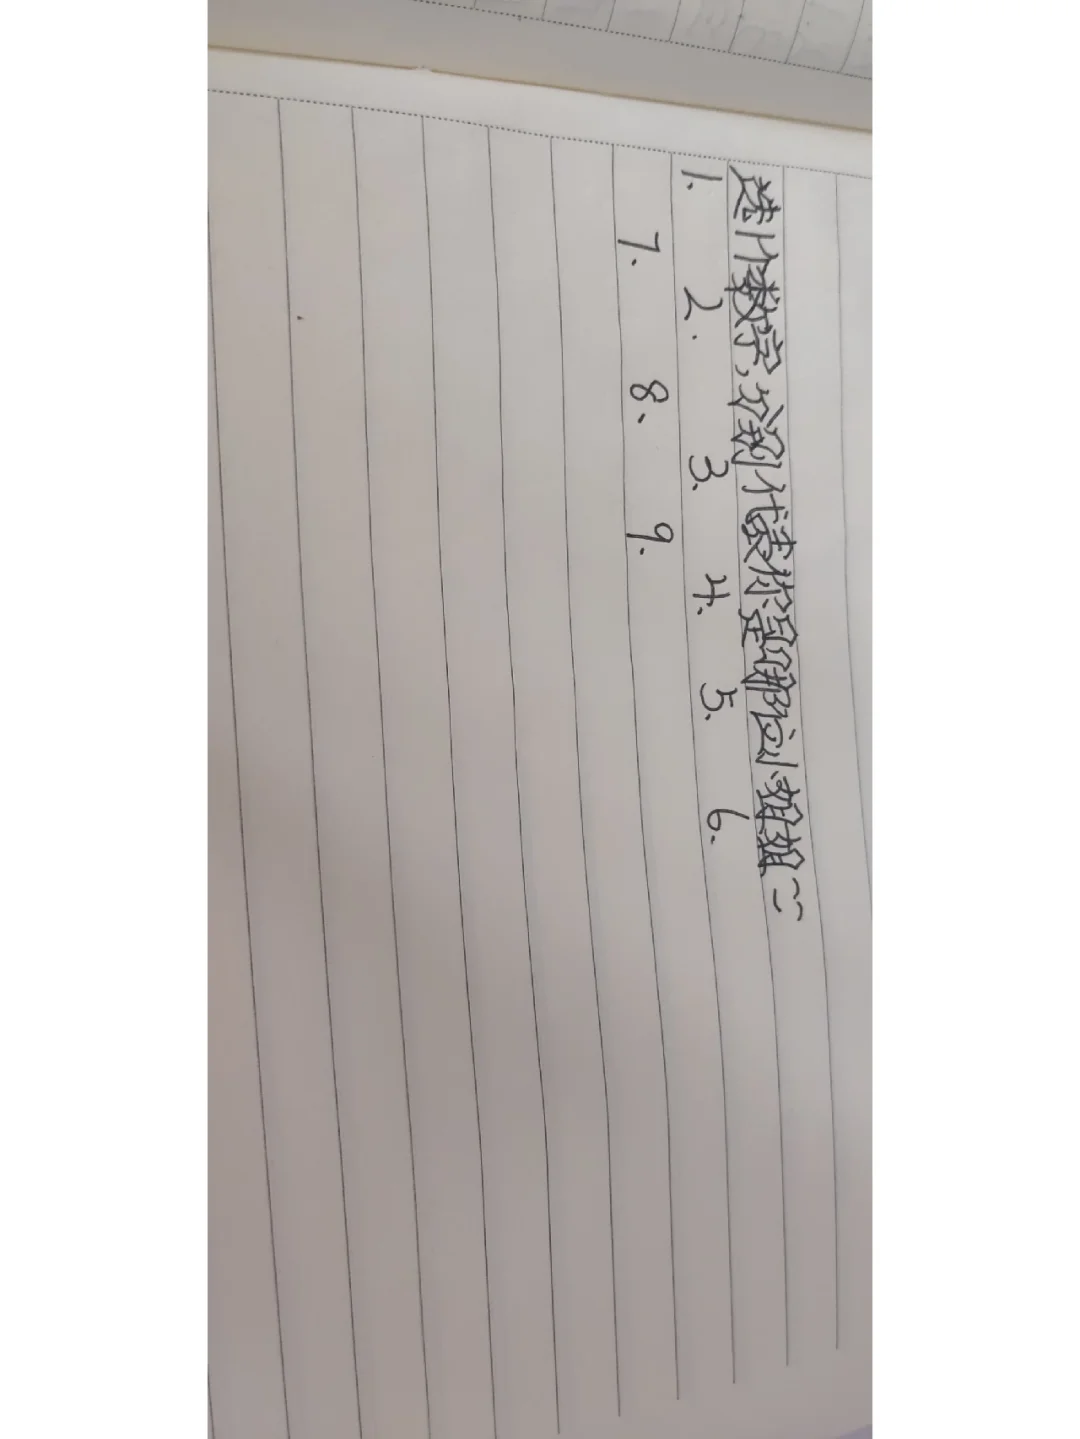 选1个数字,分别代表你是哪位小姐姐
1. 2. 3. 4. 5. 6.
7. 8. 9.